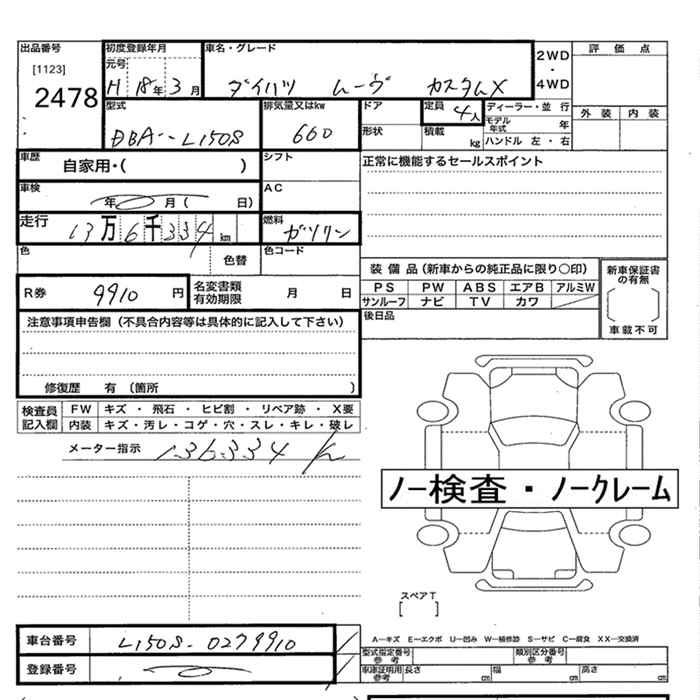 出品番号 [1123] 2478
初度登録年月 元号 H 18年 3月
車名・グレード ダイハツ ムーヴ カスタムX
2WD ・ 4WD
評価点
外装 内装
型式 DBA-L150S
排気量又はkw 660
ドア 形状
定員 4人 積載 kg
ディーラー・並行
モデル年式 年
ハンドル 左・右
車歴 自家用・( )
シフト
正常に機能するセールスポイント
車検 年 月( 日)
AC
走行 13万6千334km
燃料 ガソリン
色 色替
色コード
装備品(新車からの純正品に限り○印)
PS PW ABS エアB アルミW
サンルーフ ナビ TV カワ
新車保証書の有無 [ ] 車載不可
R券 9910円
名変書類有効期限 月 日
後日品
注意事項申告欄(不具合内容等は具体的に記入して下さい)
修復歴 有 (箇所 )
検査員記入欄 FW キズ・飛石・ヒビ割・リペア跡・X要
内装 キズ・汚レ・コゲ・穴・スレ・キレ・破レ
メーター指示 136334 k
ノー検査・ノークレーム
スペアT [ ]
車台番号 L150S-0279910
登録番号
A―キズ E―エクボ U―凹み W―補修跡 S―サビ C―腐食 XX―交換済
型式指定番号 参考 類別区分番号 参考
車庫証明用 参考 長さ cm 幅 cm 高さ cm